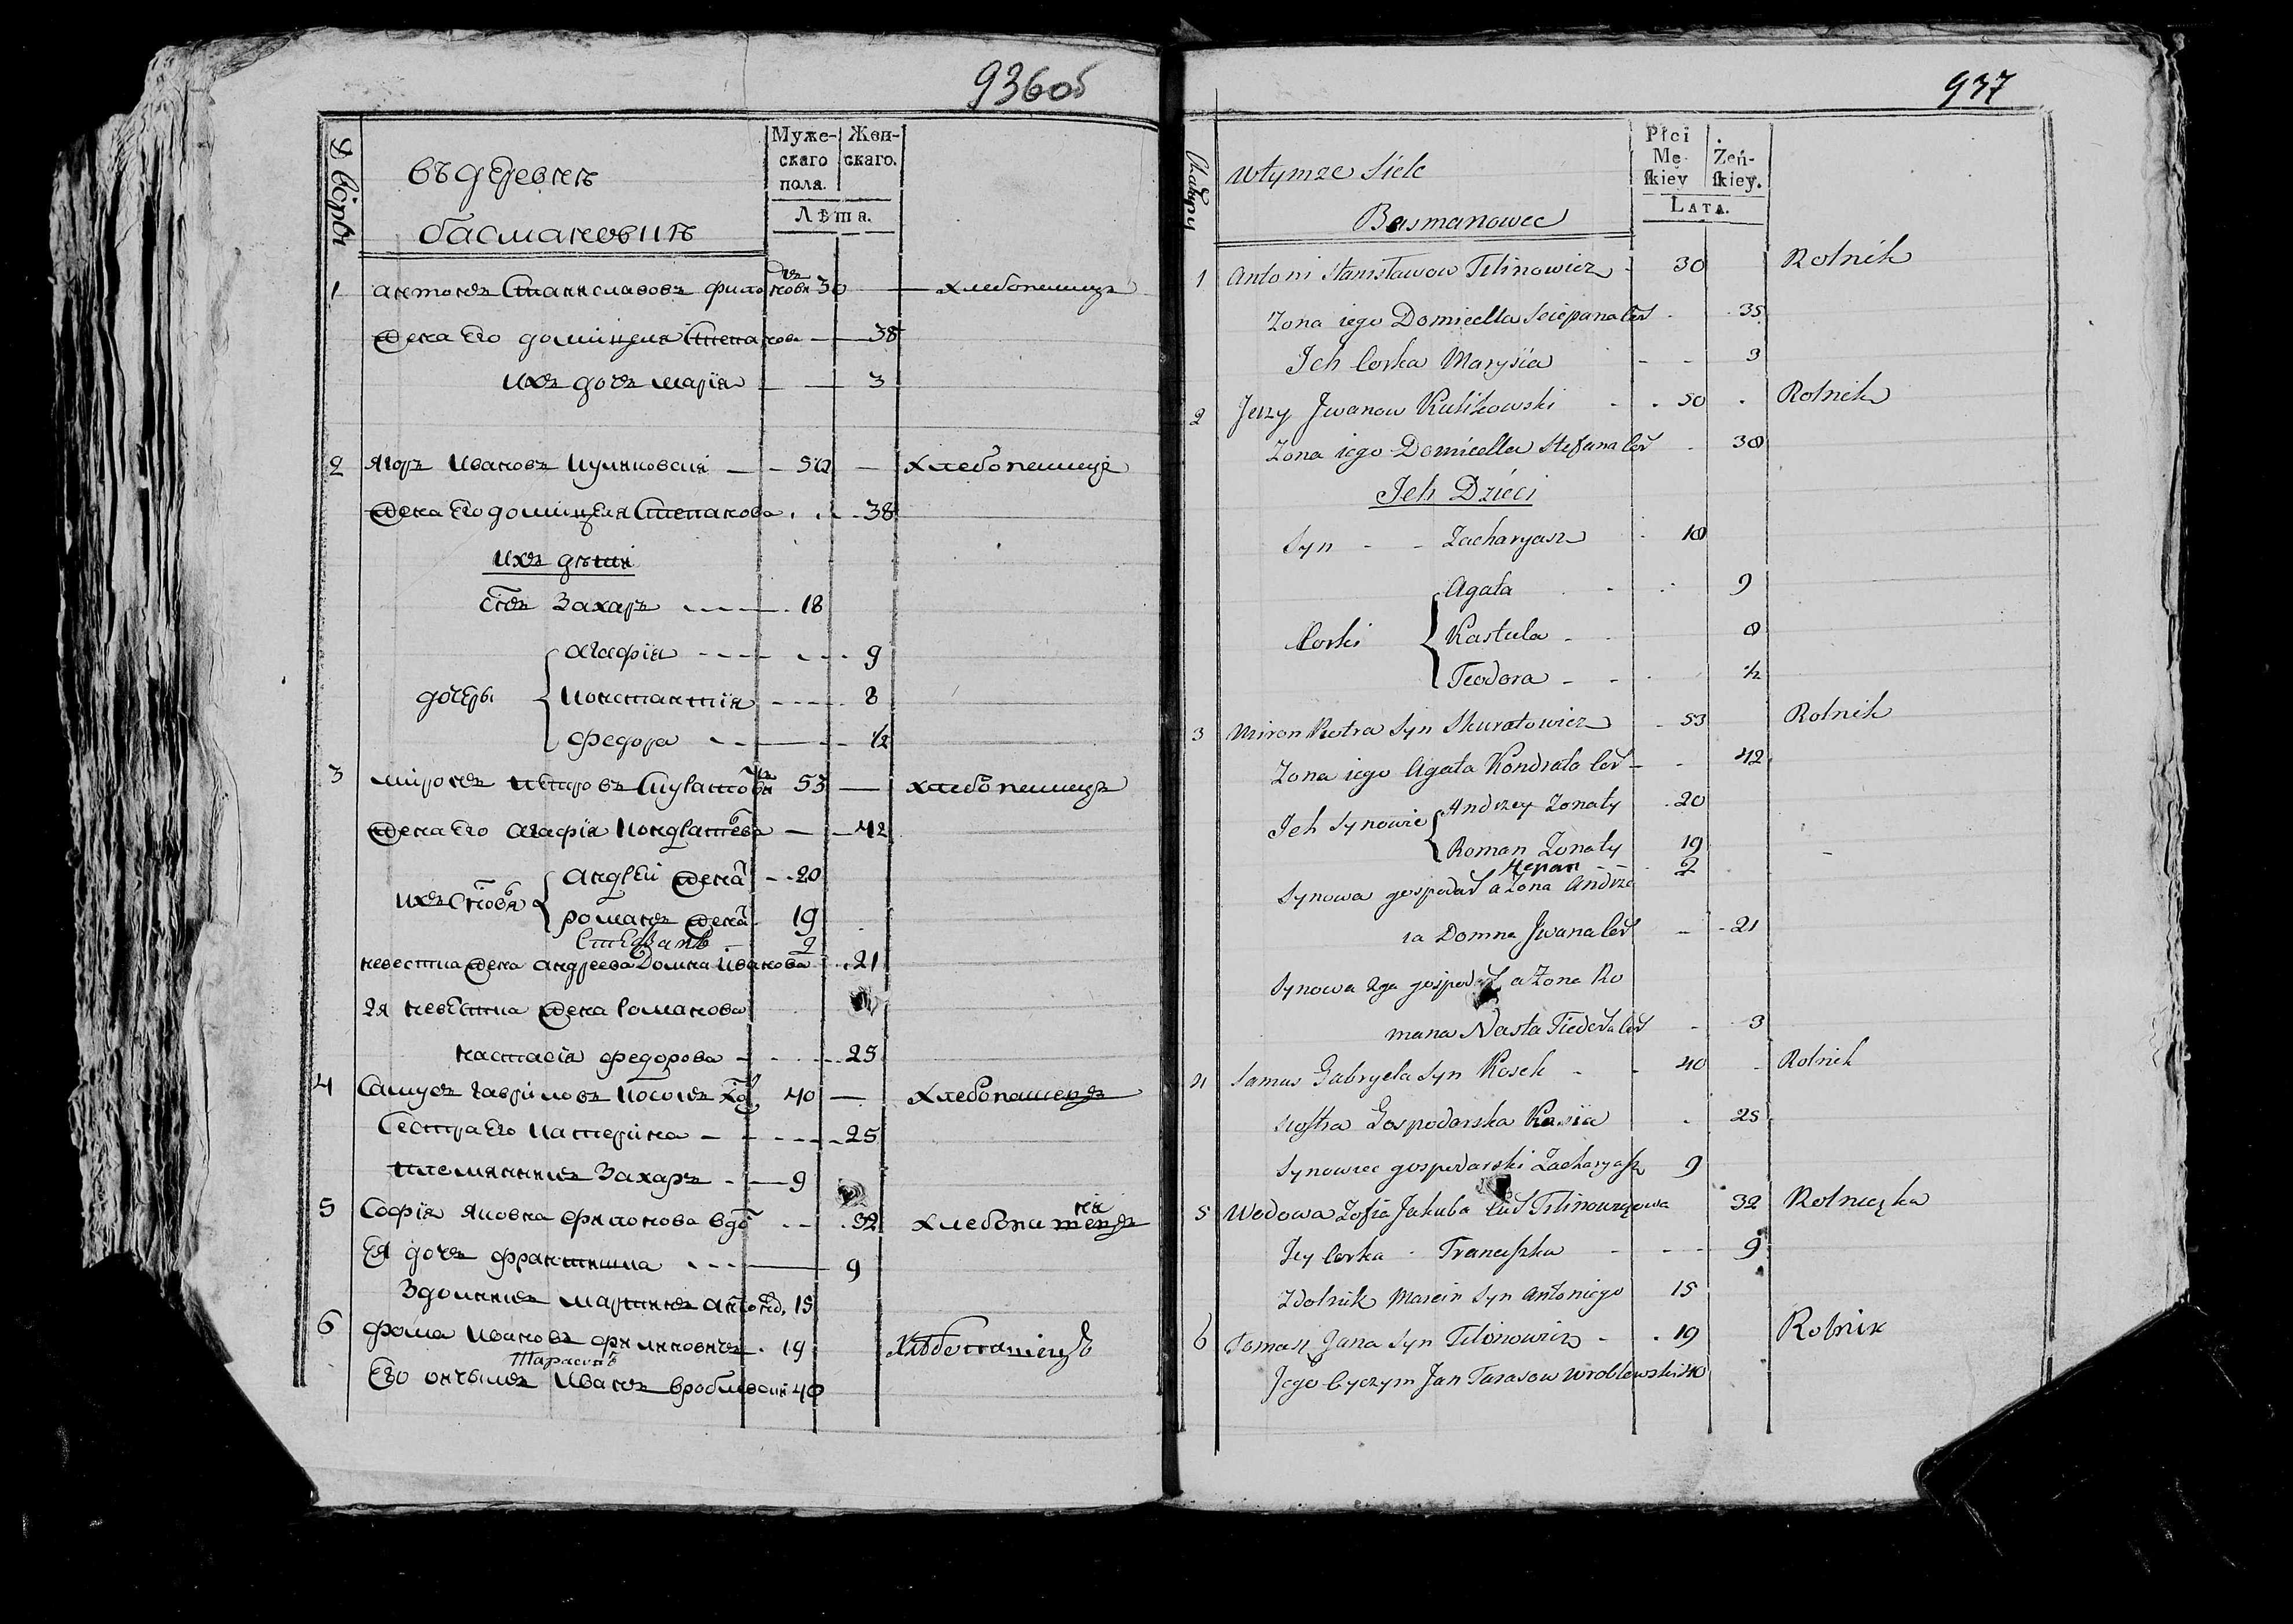 936об
дворы
въ деревнѣ
басмановцѣ
Муже-
скаго
пола.
Жен-
скаго.
Лѣта.
1 антонъ Станиславовъ 30 хлебопашецъ
жена его домицеля Степанова 38
ихъ дочь марія 3
2 Ягоръ Ивановъ куликовскій 50 хлебопашецъ
жена его домицеля Степанова 38
ихъ дѣти
сынъ Захаръ 18
агафія 9
дочеры константія 8
федора ½
3 миронъ петровъ 53 хлебопашецъ
жена его агафія кондратова 42
андрей жена 20
ихъ романъ жена 19
Стефанъ 2
невестка жена андреева Домна Иванова 21
2я невестка жена романова
настасія федорова 25
4 Самусь гавриловъ 40 хлебопашецъ
Сестра его катерина 25
племянникъ Захаръ 9
5 Софія яковва вдо 32
Ея дочь 9
мартинъ 15
6 фома Ивановъ 19 хлебопашецъ
Тарасовъ
Его Иванъ 40
937
Chałupy
W tymze Siele
Basmanowce
Płci
Mę-
skiey
Żeń-
skiey.
LATA.
1 Antoni Stanisławow Filinowicz 30 Rolnik
Zona iego Domicella Sciepana Cor 35
Ich Corka Marysia 3
2 Jerzy Jwanow Kulikowski 50 Rolnik
Zona iego Domicella Stefana Cor 38
Ich Dzieci
Syn Zacharyasz 18
Agata 9
Corki Kastula 8
Teodora ½
3 Miron Piotra Syn Skuratowicz 53 Rolnik
Zona iego Agata Kondrata Cor 42
Ich Synowie Andrzey Zonaty 20
Roman Zonaty 19
2
Synowa gospodar a Zona Andrze
ia Domna Jwana Cor 21
Synowa 2ga gospodar a Zona Ro
mana Nasta Fiedora Cor
4 Samus Gabryela Syn Kosek 40 Rolnik
siostra Gospodarska Kasia 25
Synowiec gospodarski Zacharyasz 9
5 Wdowa Zofia Jakuba 32 Rolniczka
Jey Corka Franciszka 9
Marcin Syn Antoniego 15
6 Tomasz Jana Syn Filinowicz 19 Rolnik
Jego Oyczym Jan Tarasow Wroblewski 40